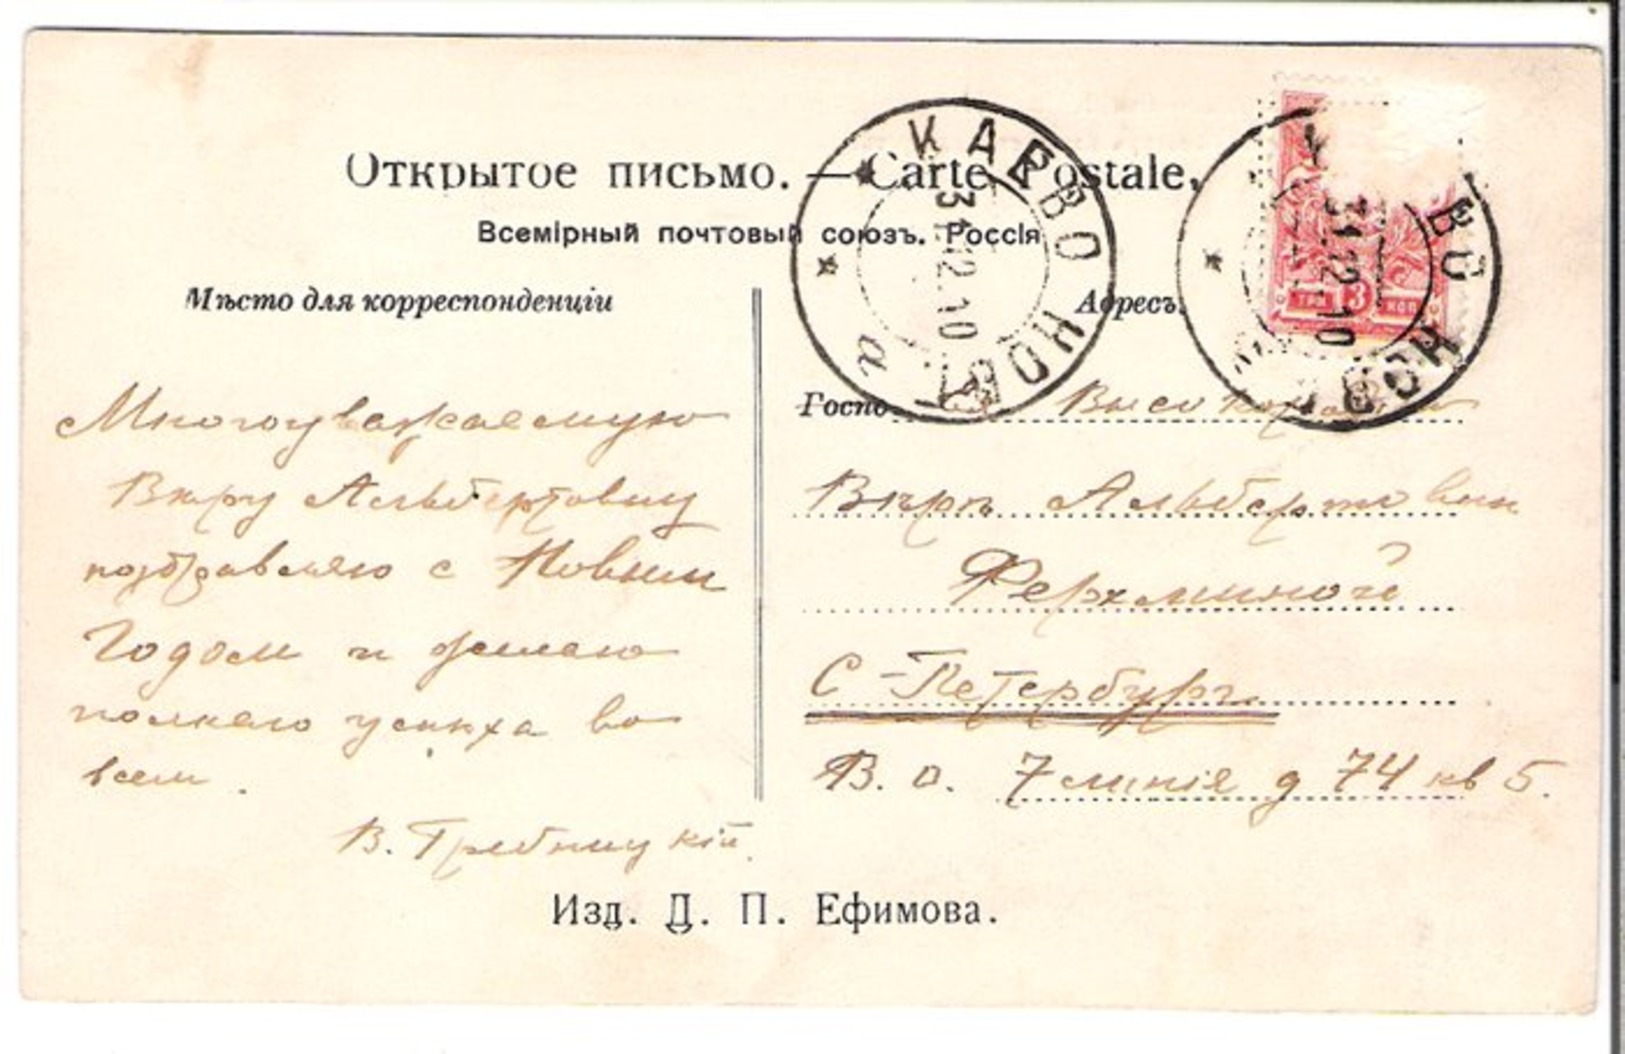 Открытое письмо. — Carte Postale.
Всемірный почтовый союзъ. Россія
Мѣсто для корреспонденціи
Адресъ.
КАРВО НОВ
31.12.10
а
31.12.10
ТРИ 3 КОП
Многоуважаемую
Вѣру Альбертовну
поздравляю с Новым
Годом и желаю
полнаго успѣха во
всем.
В. Гребницкій.
Госпо
Вѣрѣ Альбертовнѣ
Ферхминой
С-Петербургъ
В. О. 7 линія д 74 кв 5.
Изд. Д. П. Ефимова.